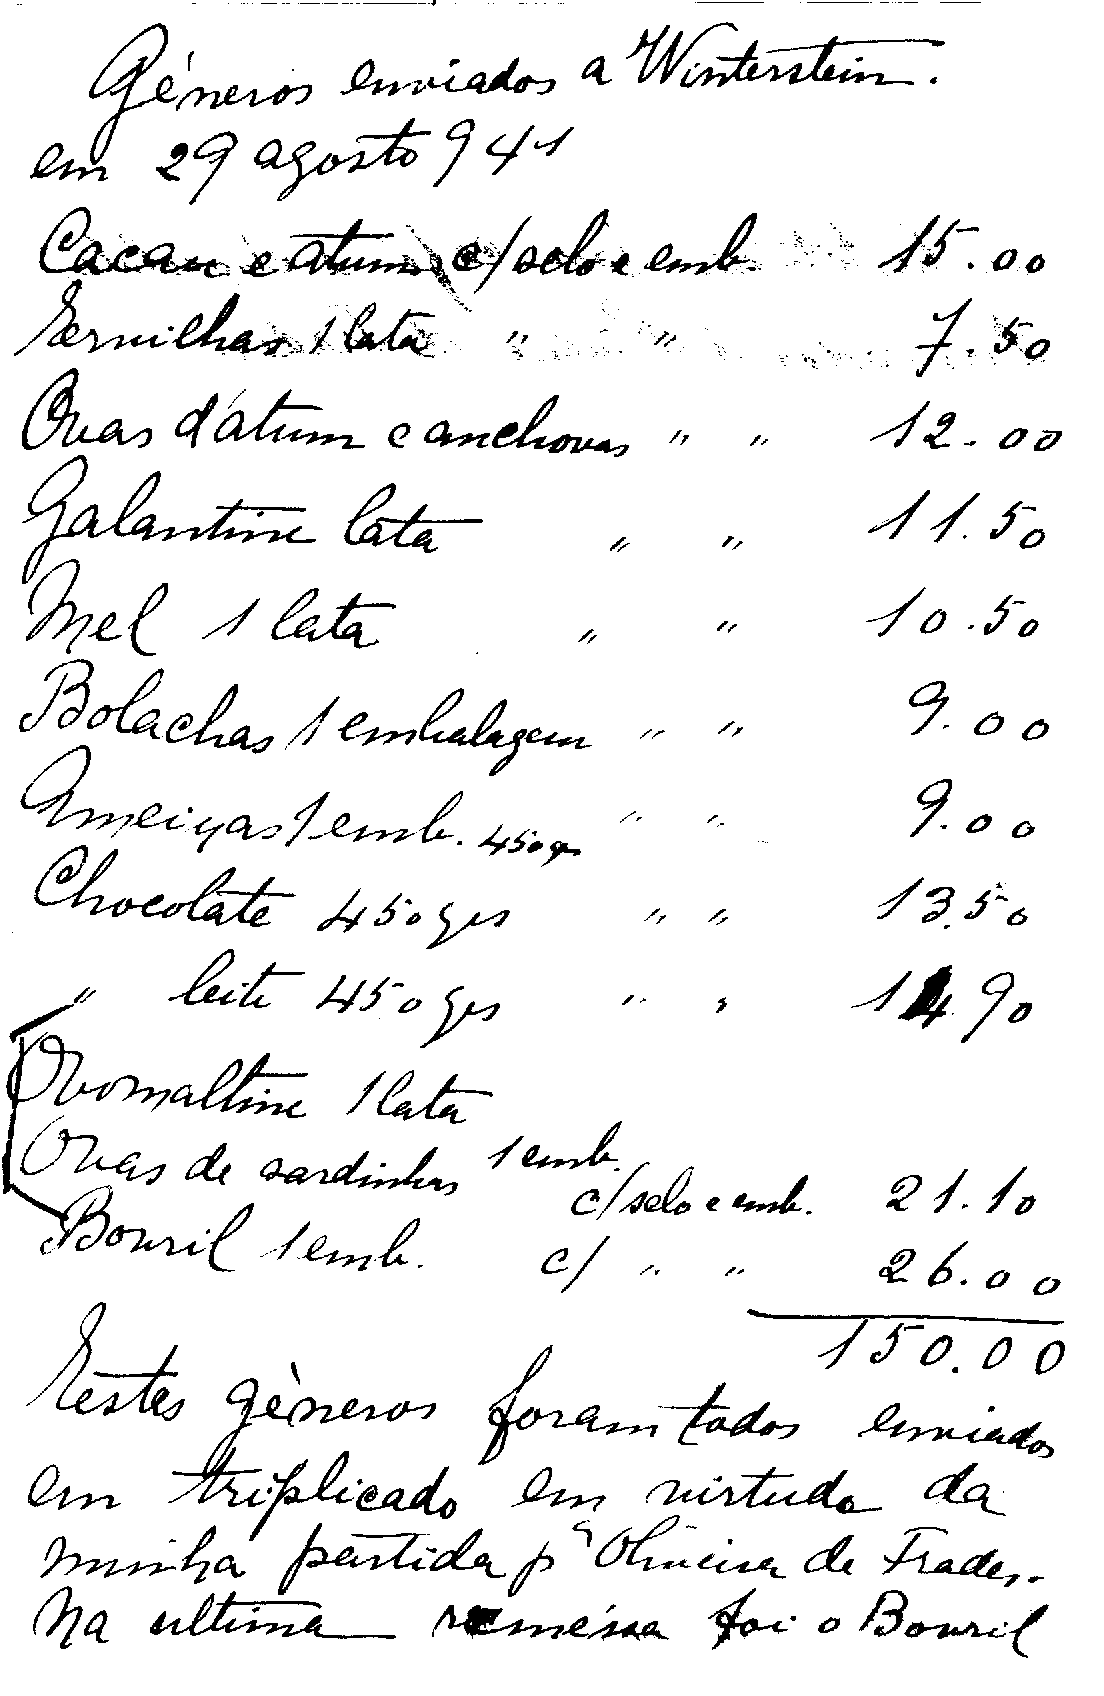 Géneros enviados a Winterstein.
em 29 agosto 941
Cacau e atum c/selo e emb. 15.00
Ervilhas 1 lata " " 7.50
Ovas d'atum e anchovas " " 12.00
Galantine lata " " 11.50
Mel 1 lata " " 10.50
Bolachas 1 embalagem " " 9.00
Ameixas 1 emb. 450 grs " " 9.00
Chocolate 450 grs " " 13.50
" leite 450 grs " " 14.90
Ovomaltine 1 lata
Ovas de sardinhas 1 emb.
c/selo e emb. 21.10
Bovril 1 emb. c/ " " 26.00
150.00
Estes géneros foram todos enviados
em triplicado em virtude da
minha partida pª Oliveira de Frades.
Na ultima remessa foi o Bovril